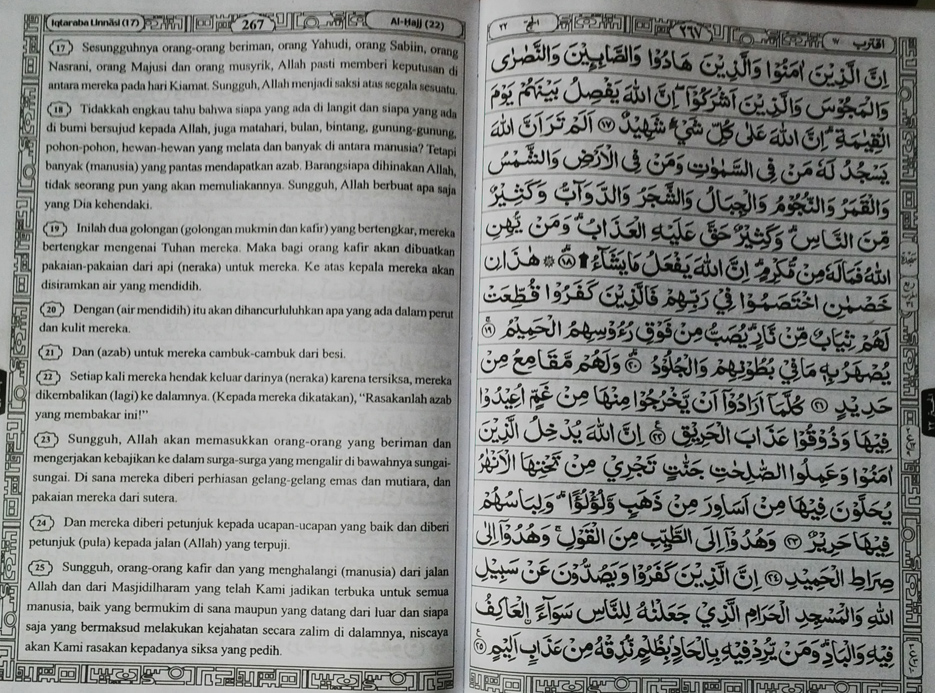 Iqtaraba Linnâsi (17)
267
Al-Ḥajj (22)
17 Sesungguhnya orang-orang beriman, orang Yahudi, orang Sabiin, orang
Nasrani, orang Majusi dan orang musyrik, Allah pasti memberi keputusan di
antara mereka pada hari Kiamat. Sungguh, Allah menjadi saksi atas segala sesuatu.
18 Tidakkah engkau tahu bahwa siapa yang ada di langit dan siapa yang ada
di bumi bersujud kepada Allah, juga matahari, bulan, bintang, gunung-gunung,
pohon-pohon, hewan-hewan yang melata dan banyak di antara manusia? Tetapi
banyak (manusia) yang pantas mendapatkan azab. Barangsiapa dihinakan Allah,
tidak seorang pun yang akan memuliakannya. Sungguh, Allah berbuat apa saja
yang Dia kehendaki.
19 Inilah dua golongan (golongan mukmin dan kafir) yang bertengkar, mereka
bertengkar mengenai Tuhan mereka. Maka bagi orang kafir akan dibuatkan
pakaian-pakaian dari api (neraka) untuk mereka. Ke atas kepala mereka akan
disiramkan air yang mendidih.
20 Dengan (air mendidih) itu akan dihancurluluhkan apa yang ada dalam perut
dan kulit mereka.
21 Dan (azab) untuk mereka cambuk-cambuk dari besi.
22 Setiap kali mereka hendak keluar darinya (neraka) karena tersiksa, mereka
dikembalikan (lagi) ke dalamnya. (Kepada mereka dikatakan), “Rasakanlah azab
yang membakar ini!”
23 Sungguh, Allah akan memasukkan orang-orang yang beriman dan
mengerjakan kebajikan ke dalam surga-surga yang mengalir di bawahnya sungai-
sungai. Di sana mereka diberi perhiasan gelang-gelang emas dan mutiara, dan
pakaian mereka dari sutera.
24 Dan mereka diberi petunjuk kepada ucapan-ucapan yang baik dan diberi
petunjuk (pula) kepada jalan (Allah) yang terpuji.
25 Sungguh, orang-orang kafir dan yang menghalangi (manusia) dari jalan
Allah dan dari Masjidilharam yang telah Kami jadikan terbuka untuk semua
manusia, baik yang bermukim di sana maupun yang datang dari luar dan siapa
saja yang bermaksud melakukan kejahatan secara zalim di dalamnya, niscaya
akan Kami rasakan kepadanya siksa yang pedih.
اقترب ١٧
٢٦٧
الحج ٢٢
اِنَّ الَّذِيْنَ اٰمَنُوْا وَالَّذِيْنَ هَادُوْا وَالصَّابِـِٕيْنَ وَالنَّصٰرٰى
وَالْمَجُوْسَ وَالَّذِيْنَ اَشْرَكُوْٓا ۖاِنَّ اللّٰهَ يَفْصِلُ بَيْنَهُمْ يَوْمَ
الْقِيٰمَةِ ۗاِنَّ اللّٰهَ عَلٰى كُلِّ شَيْءٍ شَهِيْدٌ ١٧ اَلَمْ تَرَ اَنَّ اللّٰهَ
يَسْجُدُ لَهٗ مَنْ فِى السَّمٰوٰتِ وَمَنْ فِى الْاَرْضِ وَالشَّمْسُ
وَالْقَمَرُ وَالنُّجُوْمُ وَالْجِبَالُ وَالشَّجَرُ وَالدَّوَاۤبُّ وَكَثِيْرٌ
مِّنَ النَّاسِۗ وَكَثِيْرٌ حَقَّ عَلَيْهِ الْعَذَابُۗ وَمَنْ يُّهِنِ
اللّٰهُ فَمَا لَهٗ مِنْ مُّكْرِمٍۗ اِنَّ اللّٰهَ يَفْعَلُ مَا يَشَاۤءُ ۩ ١٨ ۞ هٰذٰنِ
خَصْمٰنِ اخْتَصَمُوْا فِيْ رَبِّهِمْ فَالَّذِيْنَ كَفَرُوْا قُطِّعَتْ
لَهُمْ ثِيَابٌ مِّنْ نَّارٍۗ يُصَبُّ مِنْ فَوْقِ رُءُوْسِهِمُ الْحَمِيْمُ ١٩
يُصْهَرُ بِهٖ مَا فِيْ بُطُوْنِهِمْ وَالْجُلُوْدُ ٢٠ وَلَهُمْ مَّقَامِعُ مِنْ
حَدِيْدٍ ٢١ كُلَّمَآ اَرَادُوْٓا اَنْ يَّخْرُجُوْا مِنْهَا مِنْ غَمٍّ اُعِيْدُوْا
فِيْهَا وَذُوْقُوْا عَذَابَ الْحَرِيْقِ ٢٢ اِنَّ اللّٰهَ يُدْخِلُ الَّذِيْنَ
اٰمَنُوْا وَعَمِلُوا الصّٰلِحٰتِ جَنّٰتٍ تَجْرِيْ مِنْ تَحْتِهَا الْاَنْهٰرُ
يُحَلَّوْنَ فِيْهَا مِنْ اَسَاوِرَ مِنْ ذَهَبٍ وَّلُؤْلُؤًاۗ وَلِبَاسُهُمْ
فِيْهَا حَرِيْرٌ ٢٣ وَهُدُوْٓا اِلَى الطَّيِّبِ مِنَ الْقَوْلِۚ وَهُدُوْٓا اِلٰى
صِرَاطِ الْحَمِيْدِ ٢٤ اِنَّ الَّذِيْنَ كَفَرُوْا وَيَصُدُّوْنَ عَنْ سَبِيْلِ
اللّٰهِ وَالْمَسْجِدِ الْحَرَامِ الَّذِيْ جَعَلْنٰهُ لِلنَّاسِ سَوَاۤءً ۨالْعَاكِفُ
فِيْهِ وَالْبَادِۗ وَمَنْ يُّرِدْ فِيْهِ بِاِلْحَادٍۢ بِظُلْمٍ نُّذِقْهُ مِنْ عَذَابٍ اَلِيْمٍ ٢٥